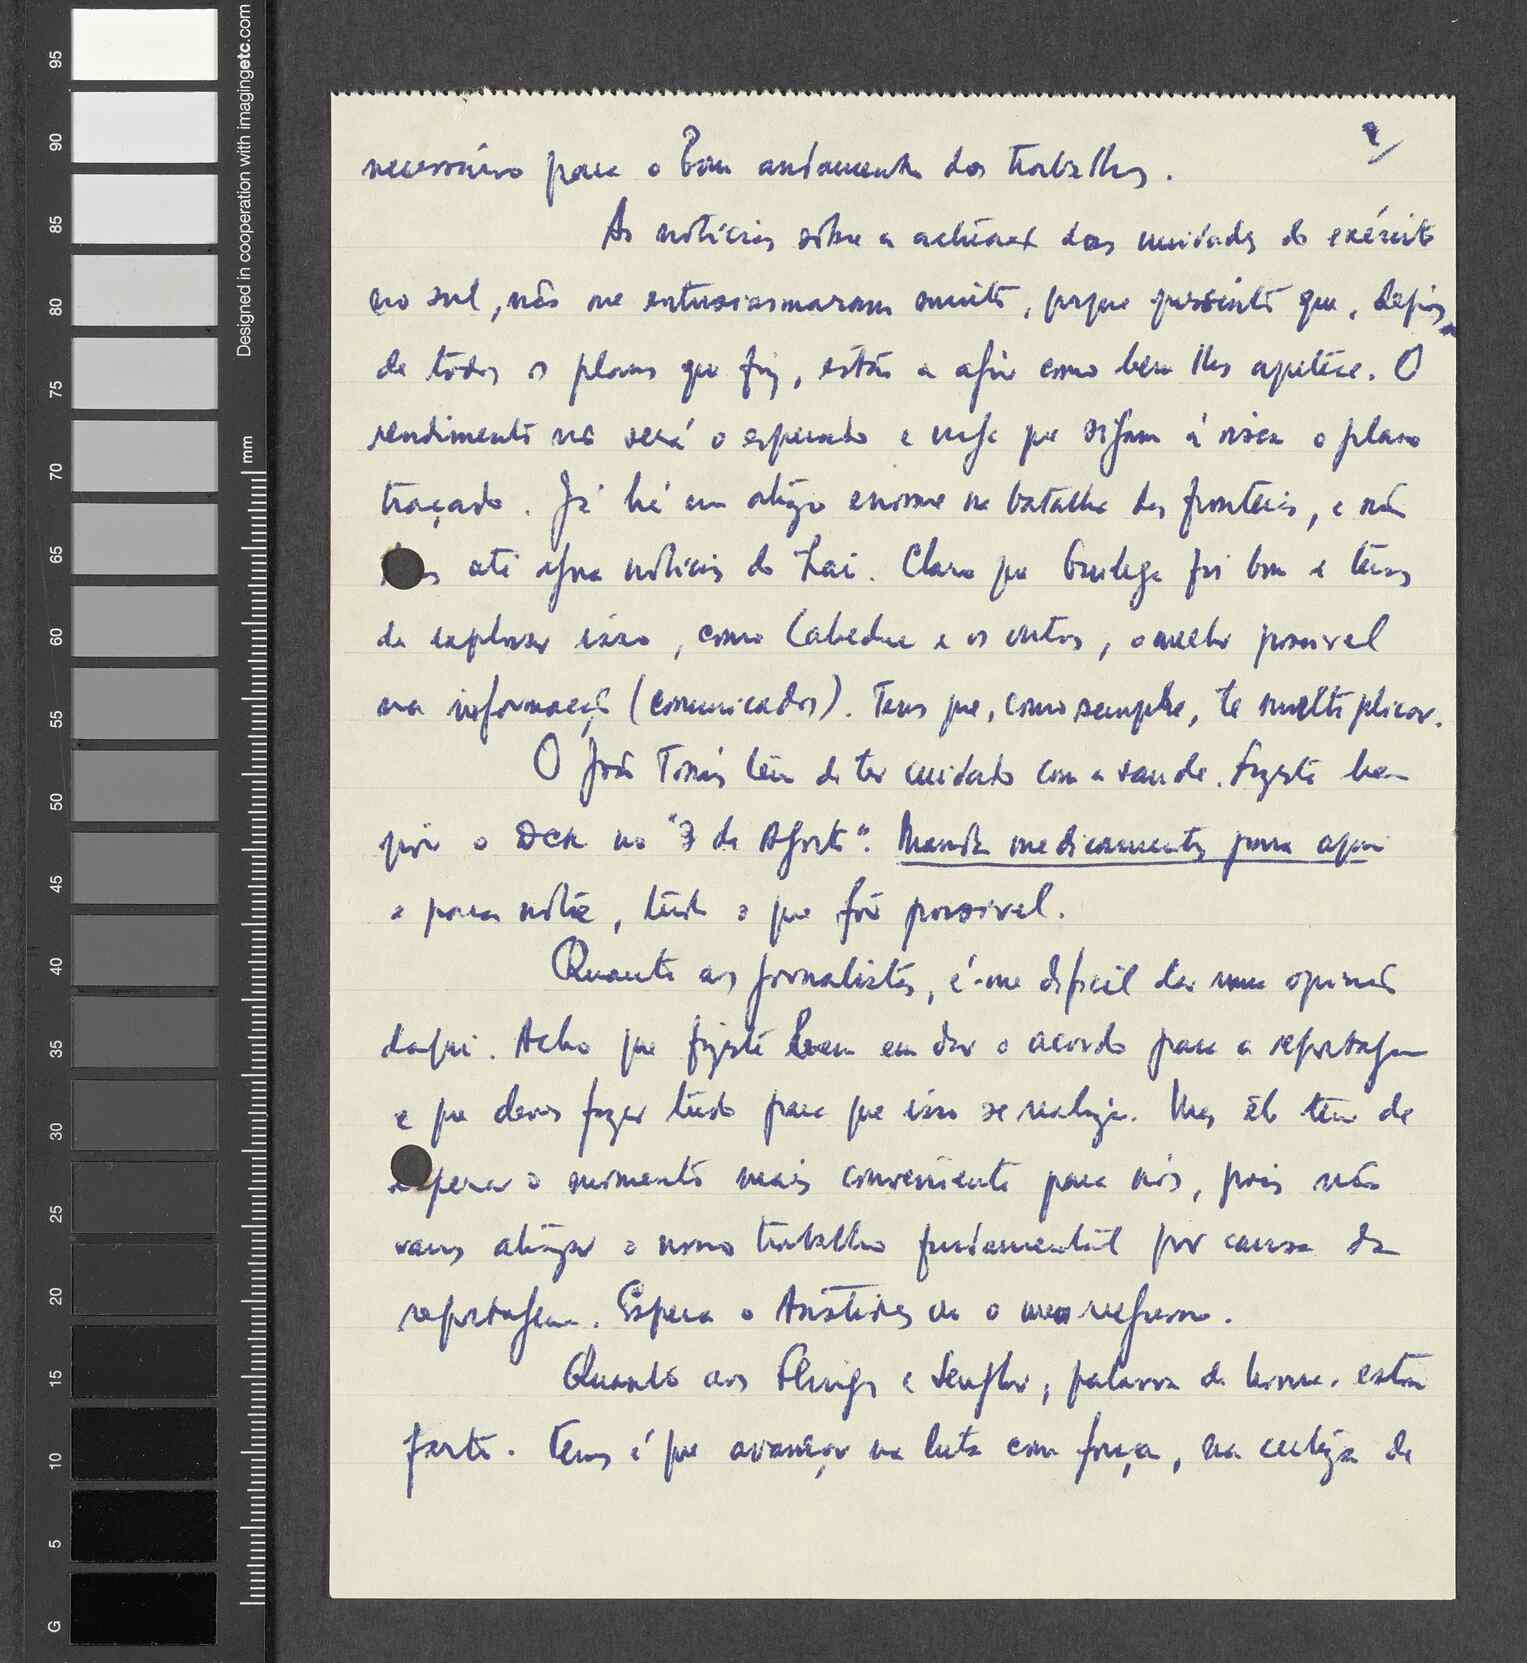 95
90
85
80
75
70
65
60
55
50
45
40
35
30
25
20
15
10
5
G
Designed in cooperation with imagingetc.com
mm
2/
necessário para o bom andamento dos trabalhos.
As notícias sôbre a actuação das unidades do exército
no sul, não me entusiasmaram muito, porque pressinto que, depois
de todos os planos que fiz, estão a agir como bem lhes apetece. O
rendimento não será o esperado e urge que sigam à risca o plano
traçado. Já há um atrazo enorme na batalha das fronteiras, e não
até agora notícias do Lai. Claro que Buelega foi bom e temos
de explorar isso, como Cabedue e os outros, o melhor possível
na informação (comunicados). Tens que, como sempre, te multiplicar.
O João Tomás têm de ter cuidado com a saude. Fizeste bem
pôr o DCK no "3 de Agosto". Manda medicamentos para aqui
e para nôtre, tudo o que fôr possivel.
Quanto aos jornalistas, é-me dificil dar uma opinião
daqui. Acho que fizeste bem em dar o acordo para a reportagem
e que deves fazer tudo para que isso se realize. Mas êle tem de
esperar o momento mais conveniente para nós, pois não
vamos atrazar o nosso trabalho fundamental por causa da
reportagem. Espera o Aristides ou o meu regresso.
Quanto aos e Senghor, palavra de honra, estou
farto. Temos é que avançar na luta com força, na certeza de